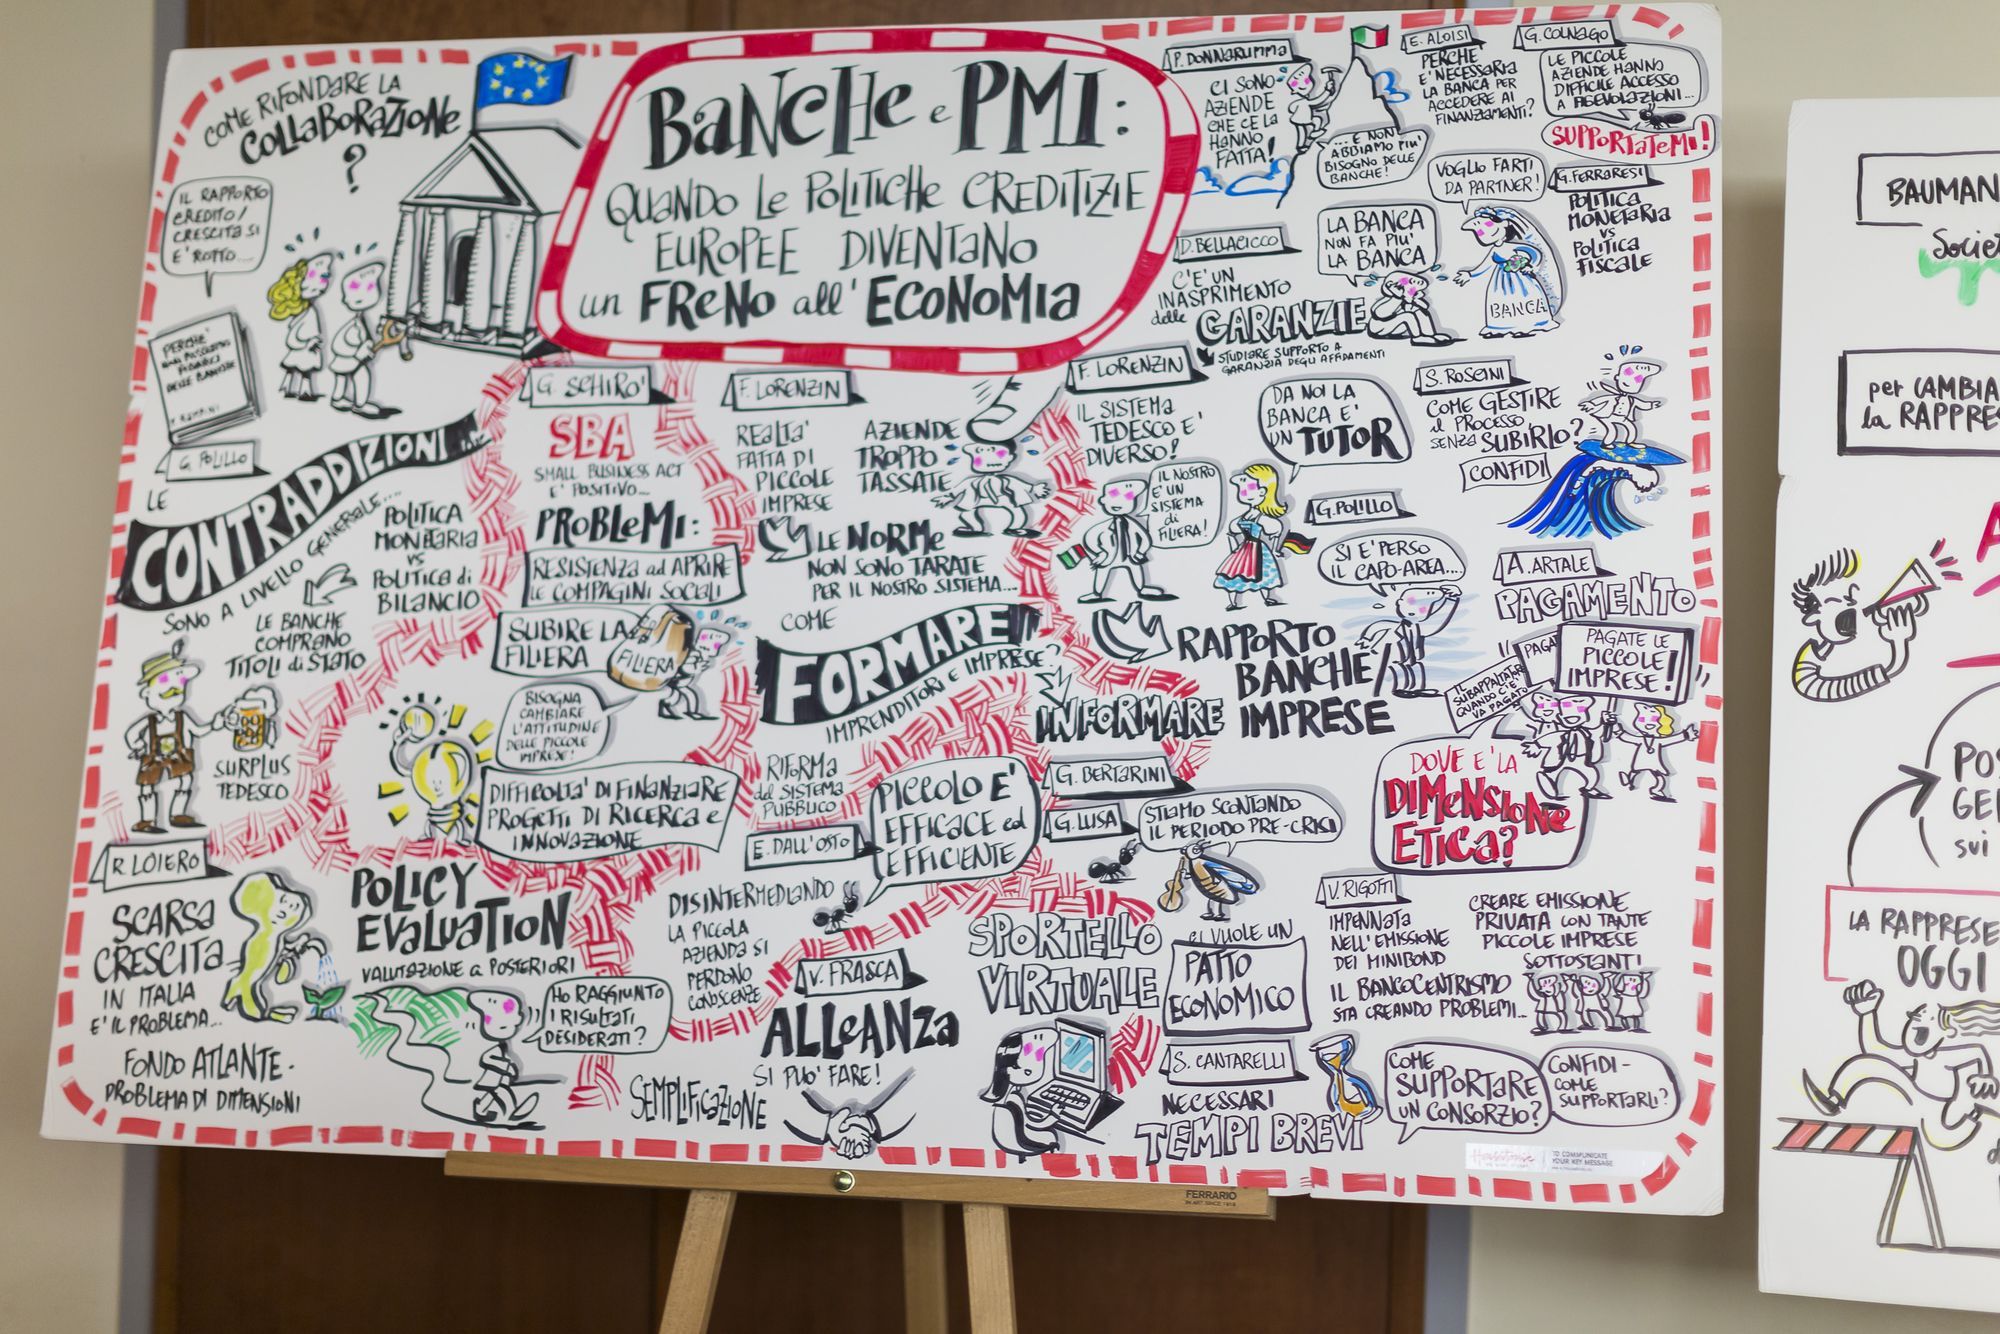 COME RIFONDARE LA
COLLABORAZIONE
?
IL RAPPORTO
CREDITO/
CRESCITA SI
E' ROTTO...
PERCHE'
DELLE BANCHE
BANCHE e PMI:
QUANDO LE POLITICHE CREDITIZIE
EUROPEE DIVENTANO
un FRENO all'ECONOMIA
P. DONNARUMMA
CI SONO
AZIENDE
CHE CE LA
HANNO
FATTA!
... E NON
ABBIAMO PIU'
BISOGNO DELLE
BANCHE!
E. ALOISI
PERCHE
E' NECESSARIA
LA BANCA PER
ACCEDERE AI
FINANZIAMENTI?
G. COLNAGO
LE PICCOLE
AZIENDE HANNO
DIFFICILE ACCESSO
A AGEVOLAZIONI...
SUPPORTATEMI!
VOGLIO FARTI
DA PARTNER!
G. FERRARESI
POLITICA
MONETARIA
vs
POLITICA
FISCALE
LA BANCA
NON FA PIU'
LA BANCA
BANCA
D. BELLACICCO
C'E' UN
INASPRIMENTO
delle
GARANZIE
STUDIARE SUPPORTO A
GARANZIA DEGLI AFFIDAMENTI
G. POLILLO
LE
CONTRADDIZIONI...
SONO A LIVELLO GENERALE...
POLITICA
MONETARIA
vs
POLITICA di
BILANCIO
LE BANCHE
COMPRANO
TITOLI di STATO
SURPLUS
TEDESCO
G. SCHIRO'
SBA
SMALL BUSINESS ACT
E' POSITIVO...
PROBLEMI:
RESISTENZA ad APRIRE
LE COMPAGINI SOCIALI
SUBIRE LA
FILIERA
FILIERA
BISOGNA
CAMBIARE
L'ATTITUDINE
DELLE PICCOLE
IMPRESE!
DIFFICOLTA' DI FINANZIARE
PROGETTI DI RICERCA e
INNOVAZIONE
F. LORENZIN
REALTA'
FATTA DI
PICCOLE
IMPRESE
AZIENDE
TROPPO
TASSATE
LE NORME
NON SONO TARATE
PER IL NOSTRO SISTEMA...
COME
FORMARE
IMPRENDITORI E IMPRESE?
INFORMARE
F. LORENZIN
IL SISTEMA
TEDESCO E'
DIVERSO!
IL NOSTRO
E' UN
SISTEMA
di
FILIERA!
DA NOI LA
BANCA E'
UN TUTOR
S. ROSSINI
COME GESTIRE
il PROCESSO
SENZA SUBIRLO?
CONFIDI
G. POLILLO
SI E' PERSO
IL CAPO-AREA...
RAPPORTO
BANCHE/
IMPRESE
A. ARTALE
PAGAMENTO
PAGAT
PAGATE LE
PICCOLE
IMPRESE!
IL
SUBAPPALTATORE
QUANDO C'E'
VA PAGATO
DOVE E' LA
DIMENSIONE
ETICA?
R. LOIERO
SCARSA
CRESCITA
IN ITALIA
E' IL PROBLEMA...
FONDO ATLANTE -
PROBLEMA DI DIMENSIONI
POLICY
EVALUATION
VALUTAZIONE a POSTERIORI
HO RAGGIUNTO
I RISULTATI
DESIDERATI?
RIFORMA
del SISTEMA
PUBBLICO
E. DALL'OSTO
PICCOLO E'
EFFICACE ed
EFFICIENTE
DISINTERMEDIANDO
LA PICCOLA
AZIENDA SI
PERDONO
CONOSCENZE
V. FRASCA
ALLEANZA
SI PUO' FARE!
SEMPLIFICAZIONE
G. BERTARINI
G. LUSA
STIAMO SCONTANDO
IL PERIODO PRE-CRISI
SPORTELLO
VIRTUALE
CI VUOLE UN
PATTO
ECONOMICO
S. CANTARELLI
NECESSARI
TEMPI BREVI
V. RIGOTTI
IMPENNATA
NELL'EMISSIONE
DEI MINIBOND
IL BANCOCENTRISMO
STA CREANDO PROBLEMI...
CREARE EMISSIONE
PRIVATA CON TANTE
PICCOLE IMPRESE
SOTTOSTANTI
COME
SUPPORTARE
UN CONSORZIO?
CONFIDI -
COME
SUPPORTARLI?
TO COMMUNICATE
YOUR KEY MESSAGE
FERRARIO
BAUMAN
Societ
per CAMBIA
la RAPPRES
A
POS
GEN
sui
LA RAPPRESE
OGGI